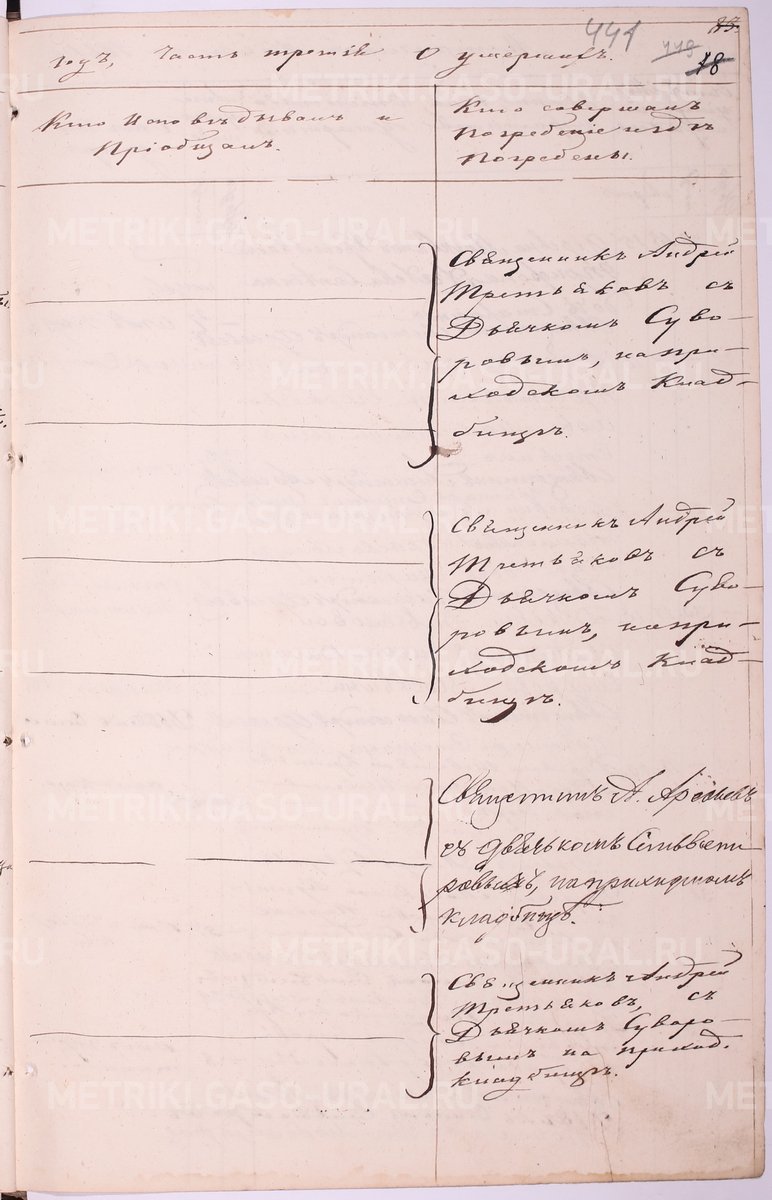 441
годъ, Часть третія О умершихъ.
18
Кто Исповѣдывалъ и
Пріобщалъ.
Кто совершалъ
Погребеніе и гдѣ
Погребены.
Священникъ Андрей
Третьяковъ съ
Дьячкомъ Суво-
ровымъ, на при-
ходскомъ Клад-
бищѣ.
Священникъ Андрей
Третьяковъ съ
Дьячкомъ Суво-
ровымъ, на при-
ходскомъ Клад-
бищѣ.
А.
съ дьячькомъ
на
кладбищѣ.
Священникъ Андрей
Третьяковъ, съ
Дьячкомъ Суворо-
вымъ на приход.
кладбищѣ.
METRIKI.GASO-URAL.RU